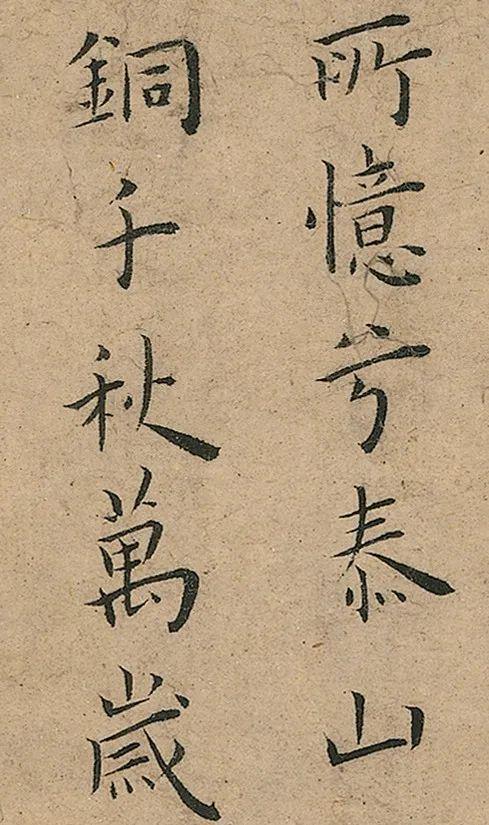 所憶兮泰山
銅千秋萬歲